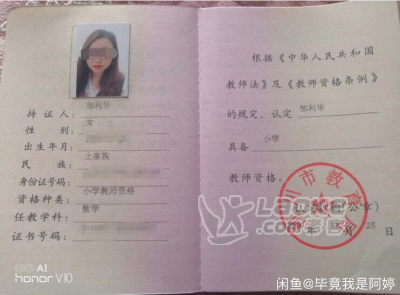 持证人：邹利华
性别：女
出生年月：
民族：土家族
身份证号码：
资格种类：小学教师资格
任教学科：数学
证书号码：
根据《中华人民共和国
教师法》及《教师资格条例》
的规定，认定 邹利华
具备 小学
教师资格。
市教育
年 月 25
AI
honor V10
闲鱼@毕竟我是阿婷